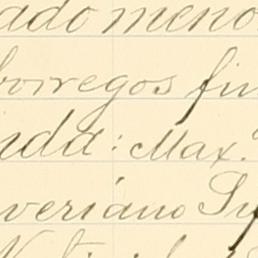 ado meno
borregos fin
nda: Max.
veriano Su